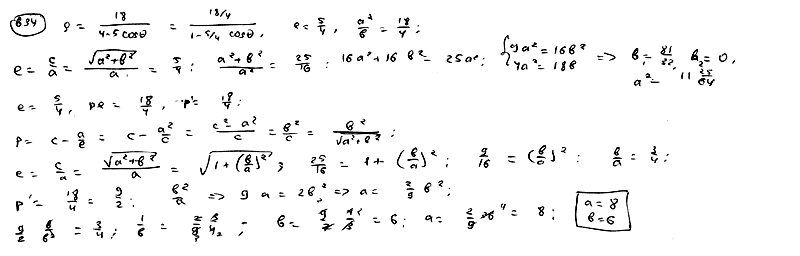 834 ρ = 18/(4-5cosθ) = (18/4)/(1-5/4 cosθ), e = 5/4, a²/b = 18/4;
e = c/a = √(a²+b²)/a = 5/4; (a²+b²)/a² = 25/16; 16a²+16b² = 25a²; { 9a² = 16b² 4a² = 18b => b₁ = 81/32, b₂ = 0, a² = 11 25/64
e = 5/4, pe = 18/4, p' = 18/4;
p = c - a/e = c - a²/c = (c²-a²)/c = b²/c = b²/√(a²+b²);
e = c/a = √(a²+b²)/a = √(1+(b/a)²); 25/16 = 1+(b/a)²; 9/16 = (b/a)²; b/a = 3/4;
p' = 18/4 = 9/2; b²/a => 9a = 2b² => a = 2/9 b²;
9/2 b/b² = 3/4; 1/b = 2/9 3/4; b = = 6; a = 2/9 = 8; a = 8 b = 6